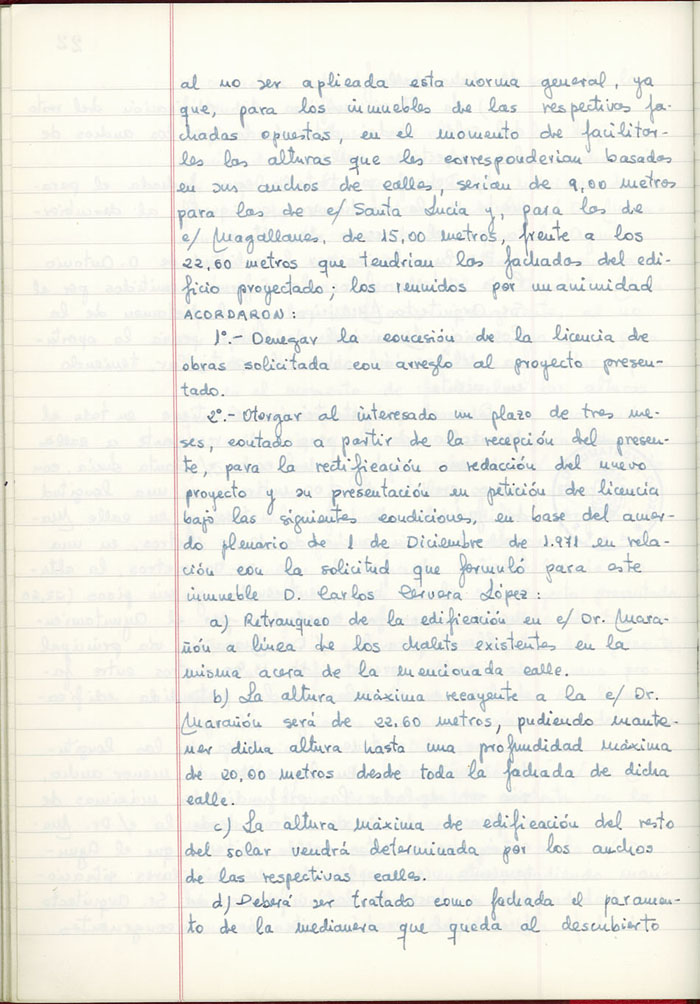 al no ser aplicada esta norma general, ya
que, para los inmuebles de las respectivas fa-
chadas opuestas, en el momento de facilitar-
les las alturas que les corresponderian basadas
en sus anchos de calles, serían de 9,00 metros
para las de c/ Santa Lucía y, para las de
c/ Magallanes, de 15,00 metros, frente a los
22,60 metros que tendrían las fachadas del edi-
ficio proyectado; los reunidos por unanimidad
ACORDARON:
1º.- Denegar la concesión de la licencia de
obras solicitada con arreglo al proyecto presen-
tado.
2º.- Otorgar al interesado un plazo de tres me-
ses, contado a partir de la recepción del presen-
te, para la rectificación o redacción del nuevo
proyecto y su presentación en petición de licencia
bajo las siguientes condiciones, en base del acuer-
do plenario de 1 de Diciembre de 1.971 en rela-
ción con la solicitud que formuló para este
inmueble D. Carlos Cervera López:
a) Retranqueo de la edificación en c/ Dr. Mara-
ñón a línea de los chalets existentes en la
misma acera de la mencionada calle.
b) La altura máxima recayente a la c/ Dr.
Marañón será de 22,60 metros, pudiendo mante-
ner dicha altura hasta una profundidad máxima
de 20,00 metros desde toda la fachada de dicha
calle.
c) La altura máxima de edificación del resto
del solar vendrá determinada por los anchos
de las respectivas calles.
d) Deberá ser tratado como fachada el paramen-
to de la medianera que queda al descubierto